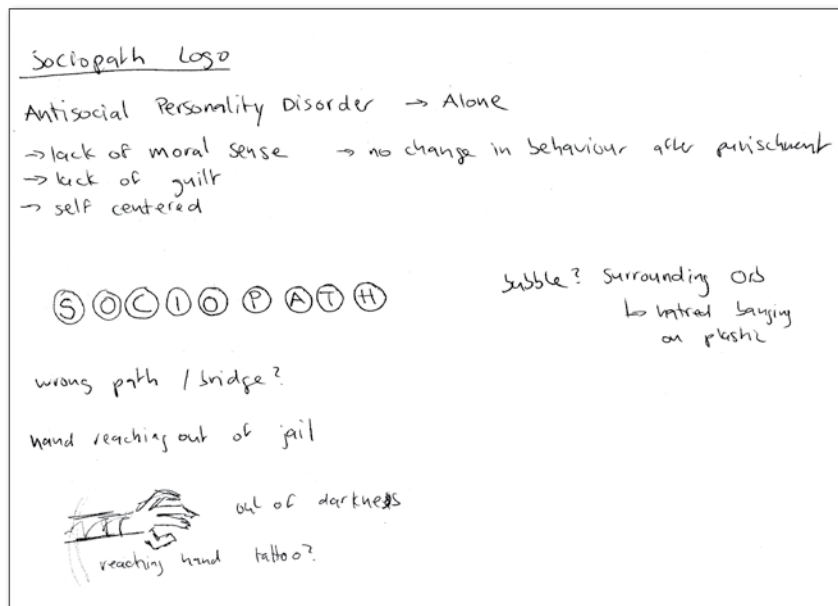 Sociopath Logo
Antisocial Personality Disorder → Alone
→ lack of moral sense → no change in behaviour after punischment
→ lack of guilt
→ self centered
S O C I O P A T H
bubble? surrounding orb
↳ hatred banging
on plastic
wrong path / bridge?
hand reaching out of jail
out of darkness
reaching hand tattoo?